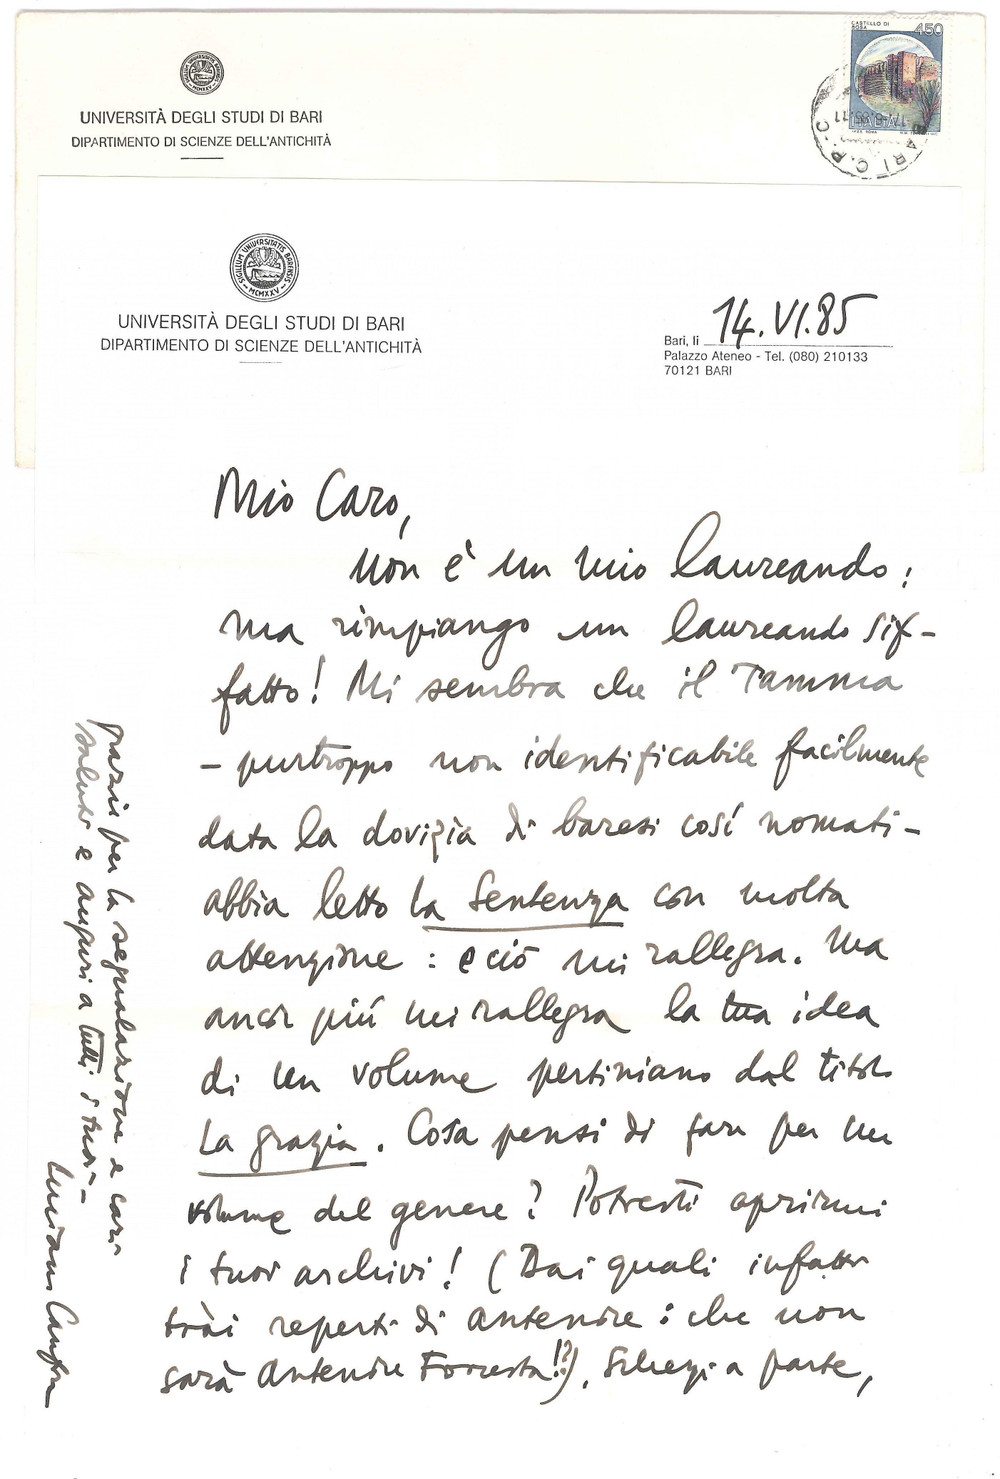 UNIVERSITÀ DEGLI STUDI DI BARI
DIPARTIMENTO DI SCIENZE DELL'ANTICHITÀ
CASTELLO DI
450
UNIVERSITÀ DEGLI STUDI DI BARI
DIPARTIMENTO DI SCIENZE DELL'ANTICHITÀ
SIGILLUM UNIVERSITATIS BARENSIS
MCMXXV
Bari, li 14.VI.85
Palazzo Ateneo - Tel. (080) 210133
70121 BARI
Mio Caro,
non è un mio laureando;
ma rimpiango un laureando sif-
fatto! Mi sembra che il Tamma
- purtroppo non identificabile facilmente
data la dovizia di baresi così nomati -
abbia letto la Sentenza con molta
attenzione: e ciò mi rallegra. Ma
ancor più mi rallegra la tua idea
di un volume pertiniano dal titolo
La grazia. Cosa pensi di fare per un
volume del genere? Potresti aprirmi
i tuoi archivi! (Dai quali infatti
trai reperti di Antenore: che non
sarà Antenore Forresta!?). Scherzi a parte,
grazie per la segnalazione e cari
saluti e auguri a tutti i tuoi -
Luciano Canfora